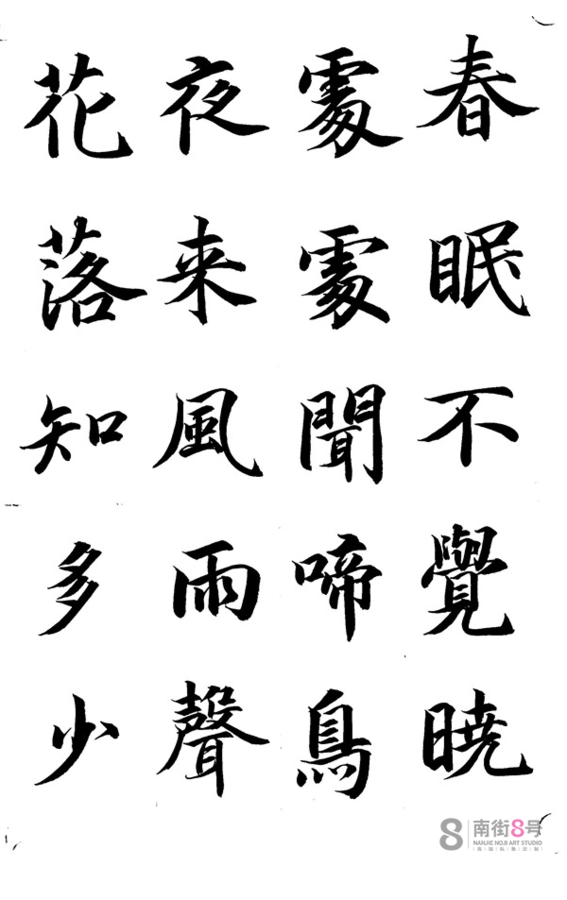 春眠不覺暁
處處聞啼鳥
夜来風雨聲
花落知多少
8 南街8号
NANJIE NO.8 ART STUDIO